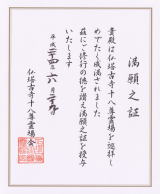 満願之証
貴殿は仏塔古寺十八尊霊場を巡拝し
めでたく成満されました
茲にご修行の徳を讃え満願之証を授与
いたします
平成二十四年六月二十三日
仏塔古寺十八尊霊場会